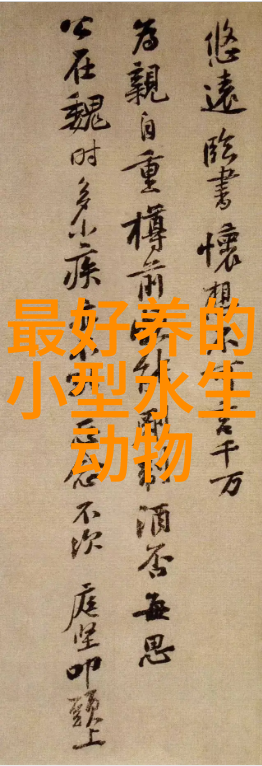 悠遠臨書懷想言千万
為親自重樽前酒否每思
公在魏时多小疾正念不次 庭堅叩頭上
最好养的
小型水生
动物